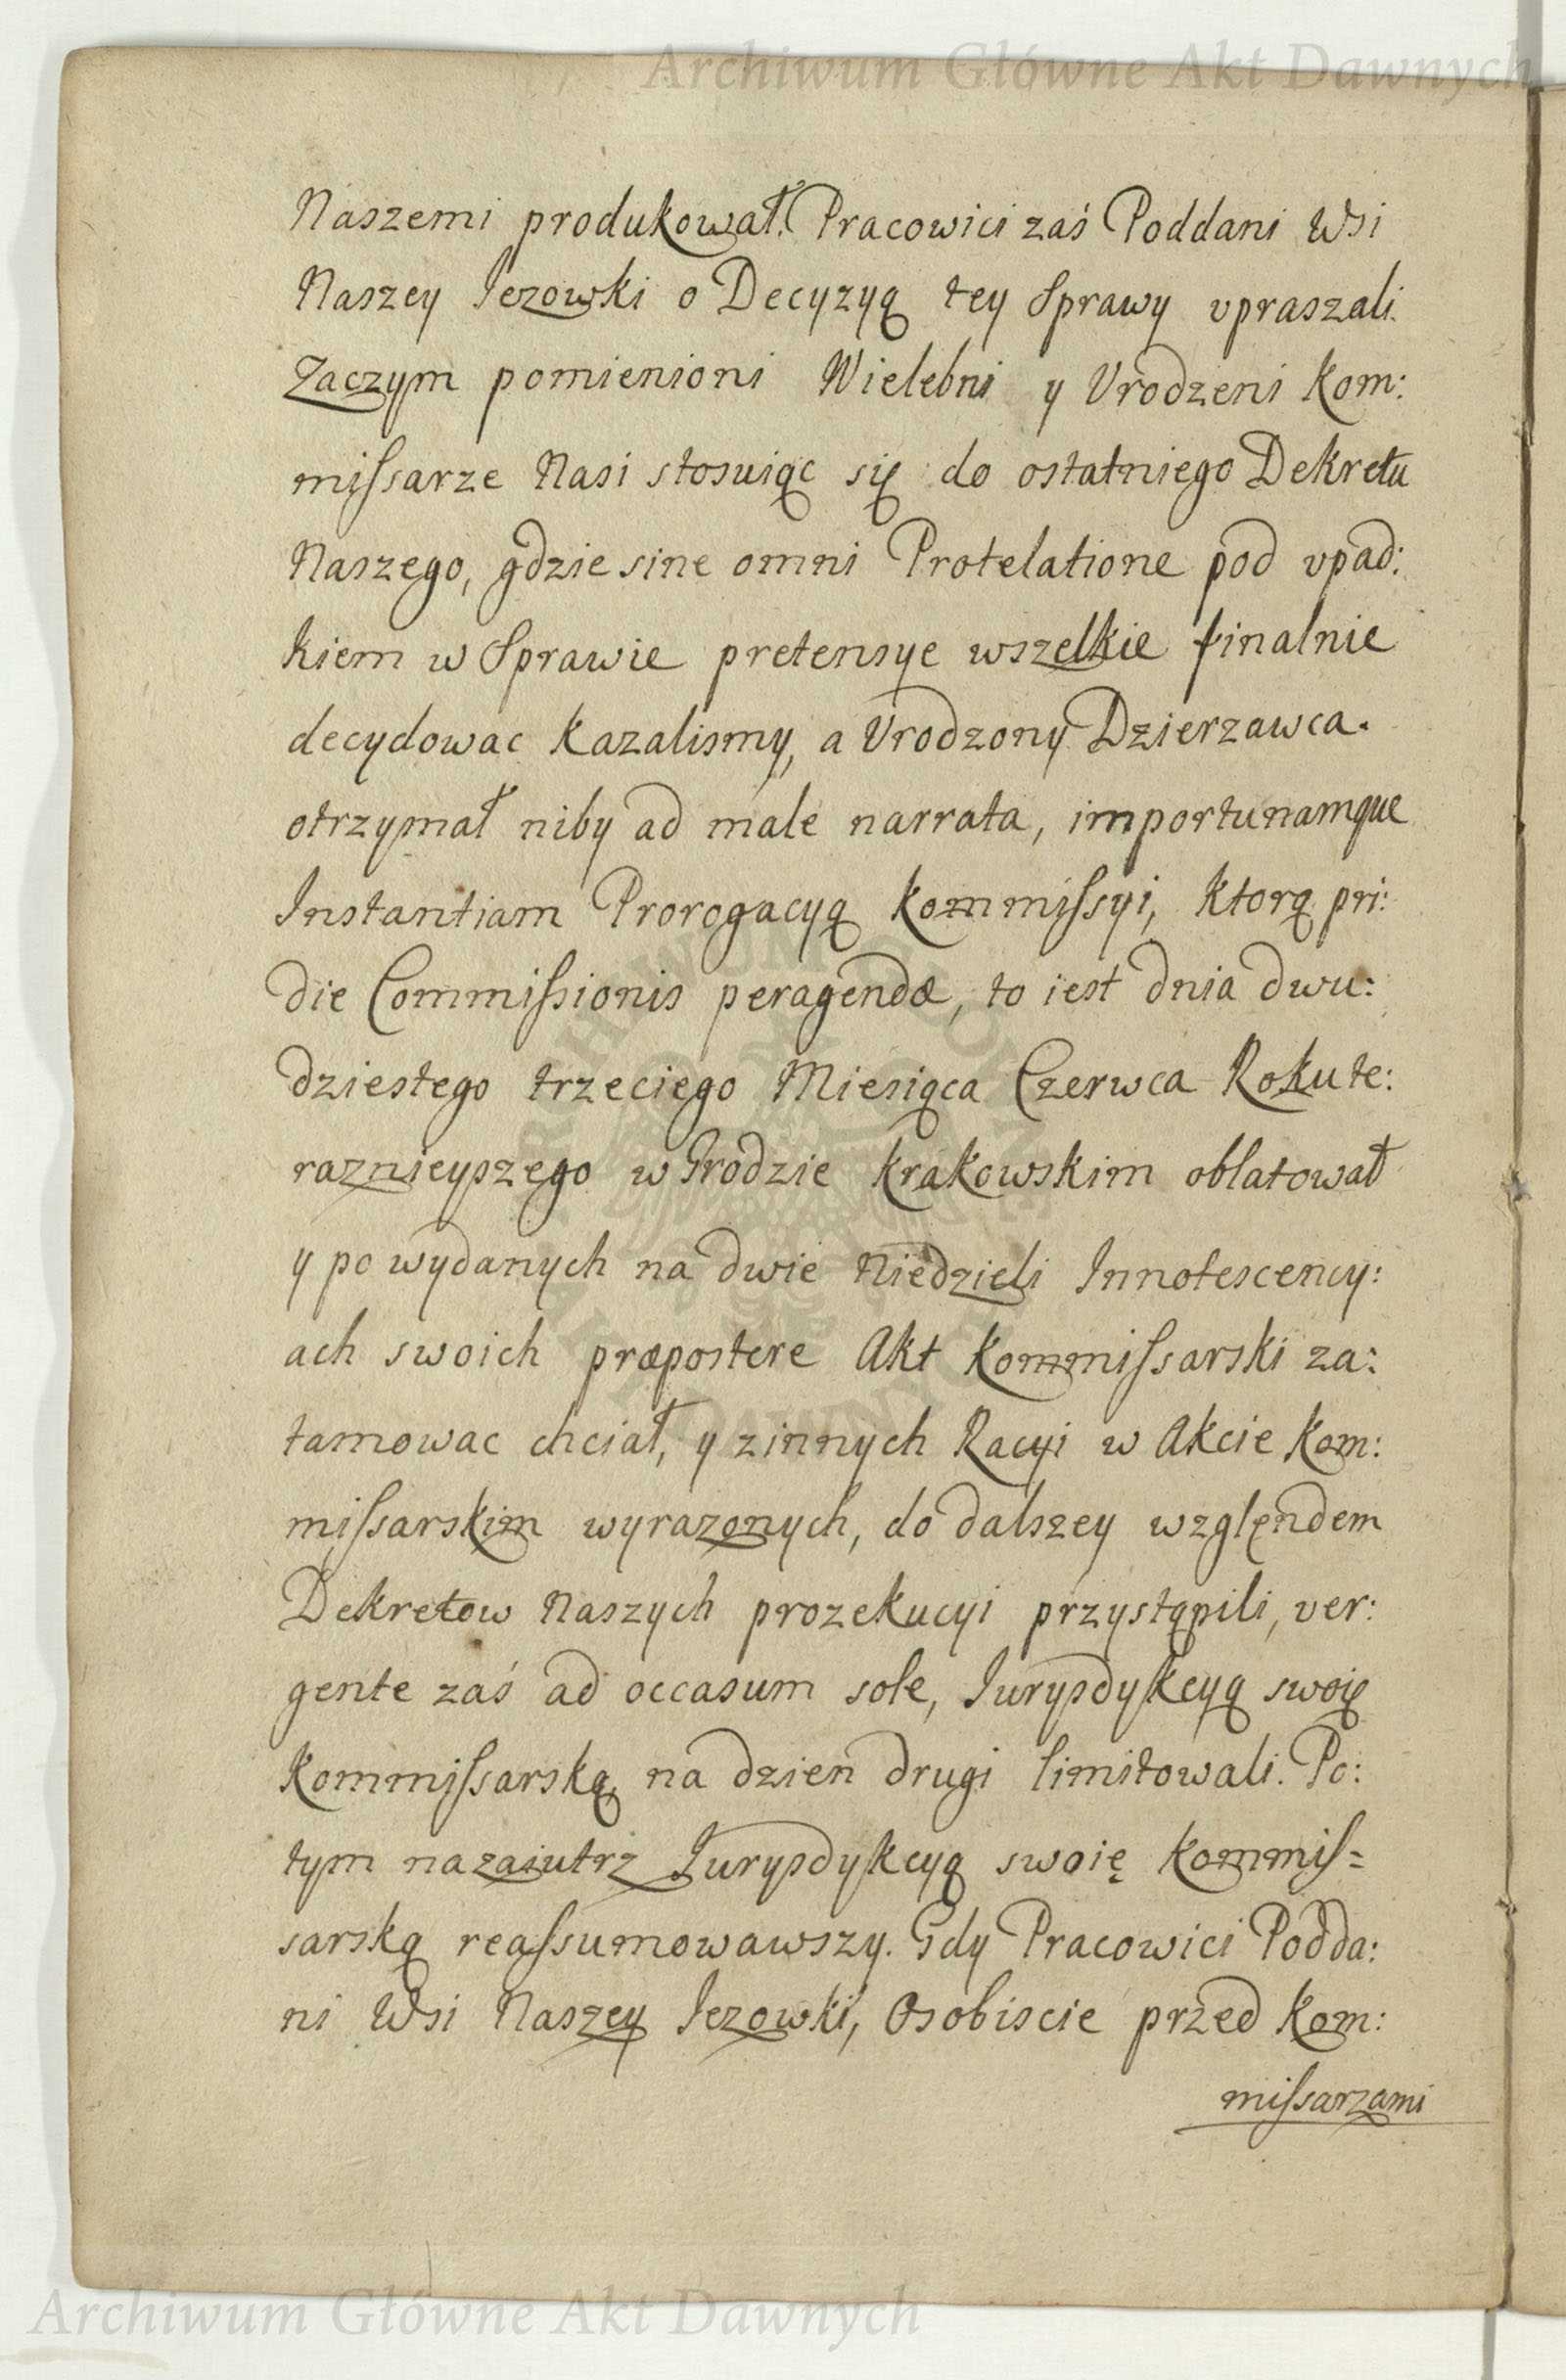 Archiwum Główne Akt Dawnych
Naszemi produkował. Pracowici zaś Poddani Wsi
Naszey Jezowski o Decyzyą tey Sprawy vpraszali.
Zaczym pomienioni Wielebni y Vrodzeni Kom:
mißarze Nasi stosuiąc się do ostatniego Dekretu
Naszego, gdzie sine omni Protelatione pod vpad:
kiem w Sprawie pretensye wszelkie finalnie
decydowac kazalismy, a Vrodzony Dzierzawca.
otrzymał niby ad male narrata, importunamque
Instantiam Prorogacyą Kommißyi, ktorą pri:
die Commißionis peragendæ, to iest dnia dwu:
dziestego trzeciego Miesiąca Czerwca Roku te:
raznieyszego w Grodzie Krakowskim oblatował
y po wydanych na dwie Niedzieli Innotescency:
ach swoich præpostere Akt Kommißarski za:
tamowac chciał, y zinnych Racyi w Akcie Kom:
mißarskim wyrazonych, do dalszey względem
Dekretow Naszych prozekucyi przystąpili, ver:
gente zaś ad occasum sole, Jurysdykcyą swoię
Kommißarską, na dzien drugi limitowali. Po:
tym nazaiutrz Jurysdykcyą swoię Kommiſ=
sarską reaßumowawszy. Gdy Pracowici Podda:
ni Wsi Naszey Jezowki, Osobiscie przed Kom:
mißarzami
Archiwum Główne Akt Dawnych